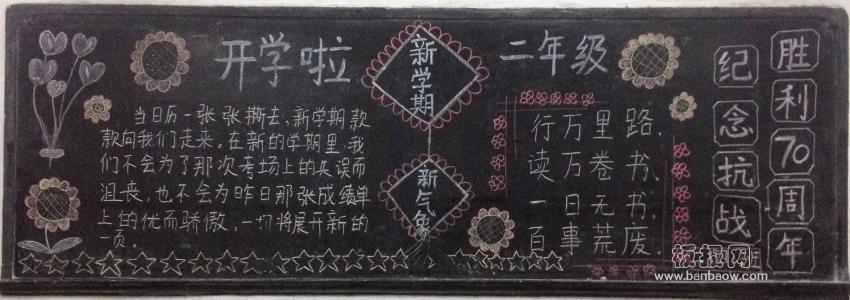 开学啦
当日历一张张撕去，新学期款
款向我们走来。在新的学期里，我
们不会为了那次考场上的失误而
沮丧，也不会为昨日那张成绩单
上的优而骄傲，一切将展开新的
一页。
新学期
新气象
二年级
行万里路，
读万卷书，
一日无书，
百事荒废，
纪念抗战
胜利70周年
板报网
www.banbaow.com